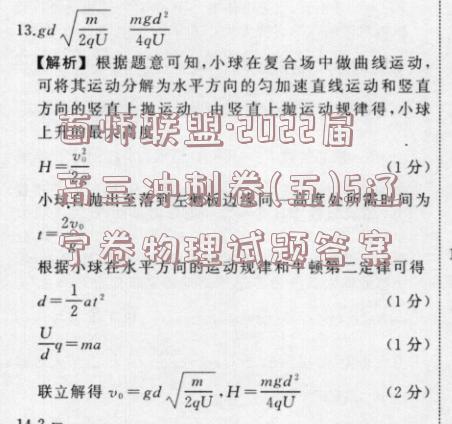 13. gd√(m/2qU)　mgd²/4qU
【解析】根据题意可知,小球在复合场中做曲线运动,
可将其运动分解为水平方向的匀加速直线运动和竖直
方向的竖直上抛运动。由竖直上抛运动规律得,小球
上升的最大高度
H=v₀²/2g （1分）
小球 抛出至落到左 板边缘同 高度处所需时间为
t=2v₀/g
根据小球在水平方向的运动规律和牛顿第二定律可得
d=1/2 at² （1分）
U/d q=ma （1分）
联立解得 v₀=gd√(m/2qU),H=mgd²/4qU （2分）
百师联盟·2022届
高三冲刺卷(五)5辽
宁卷物理试题答案